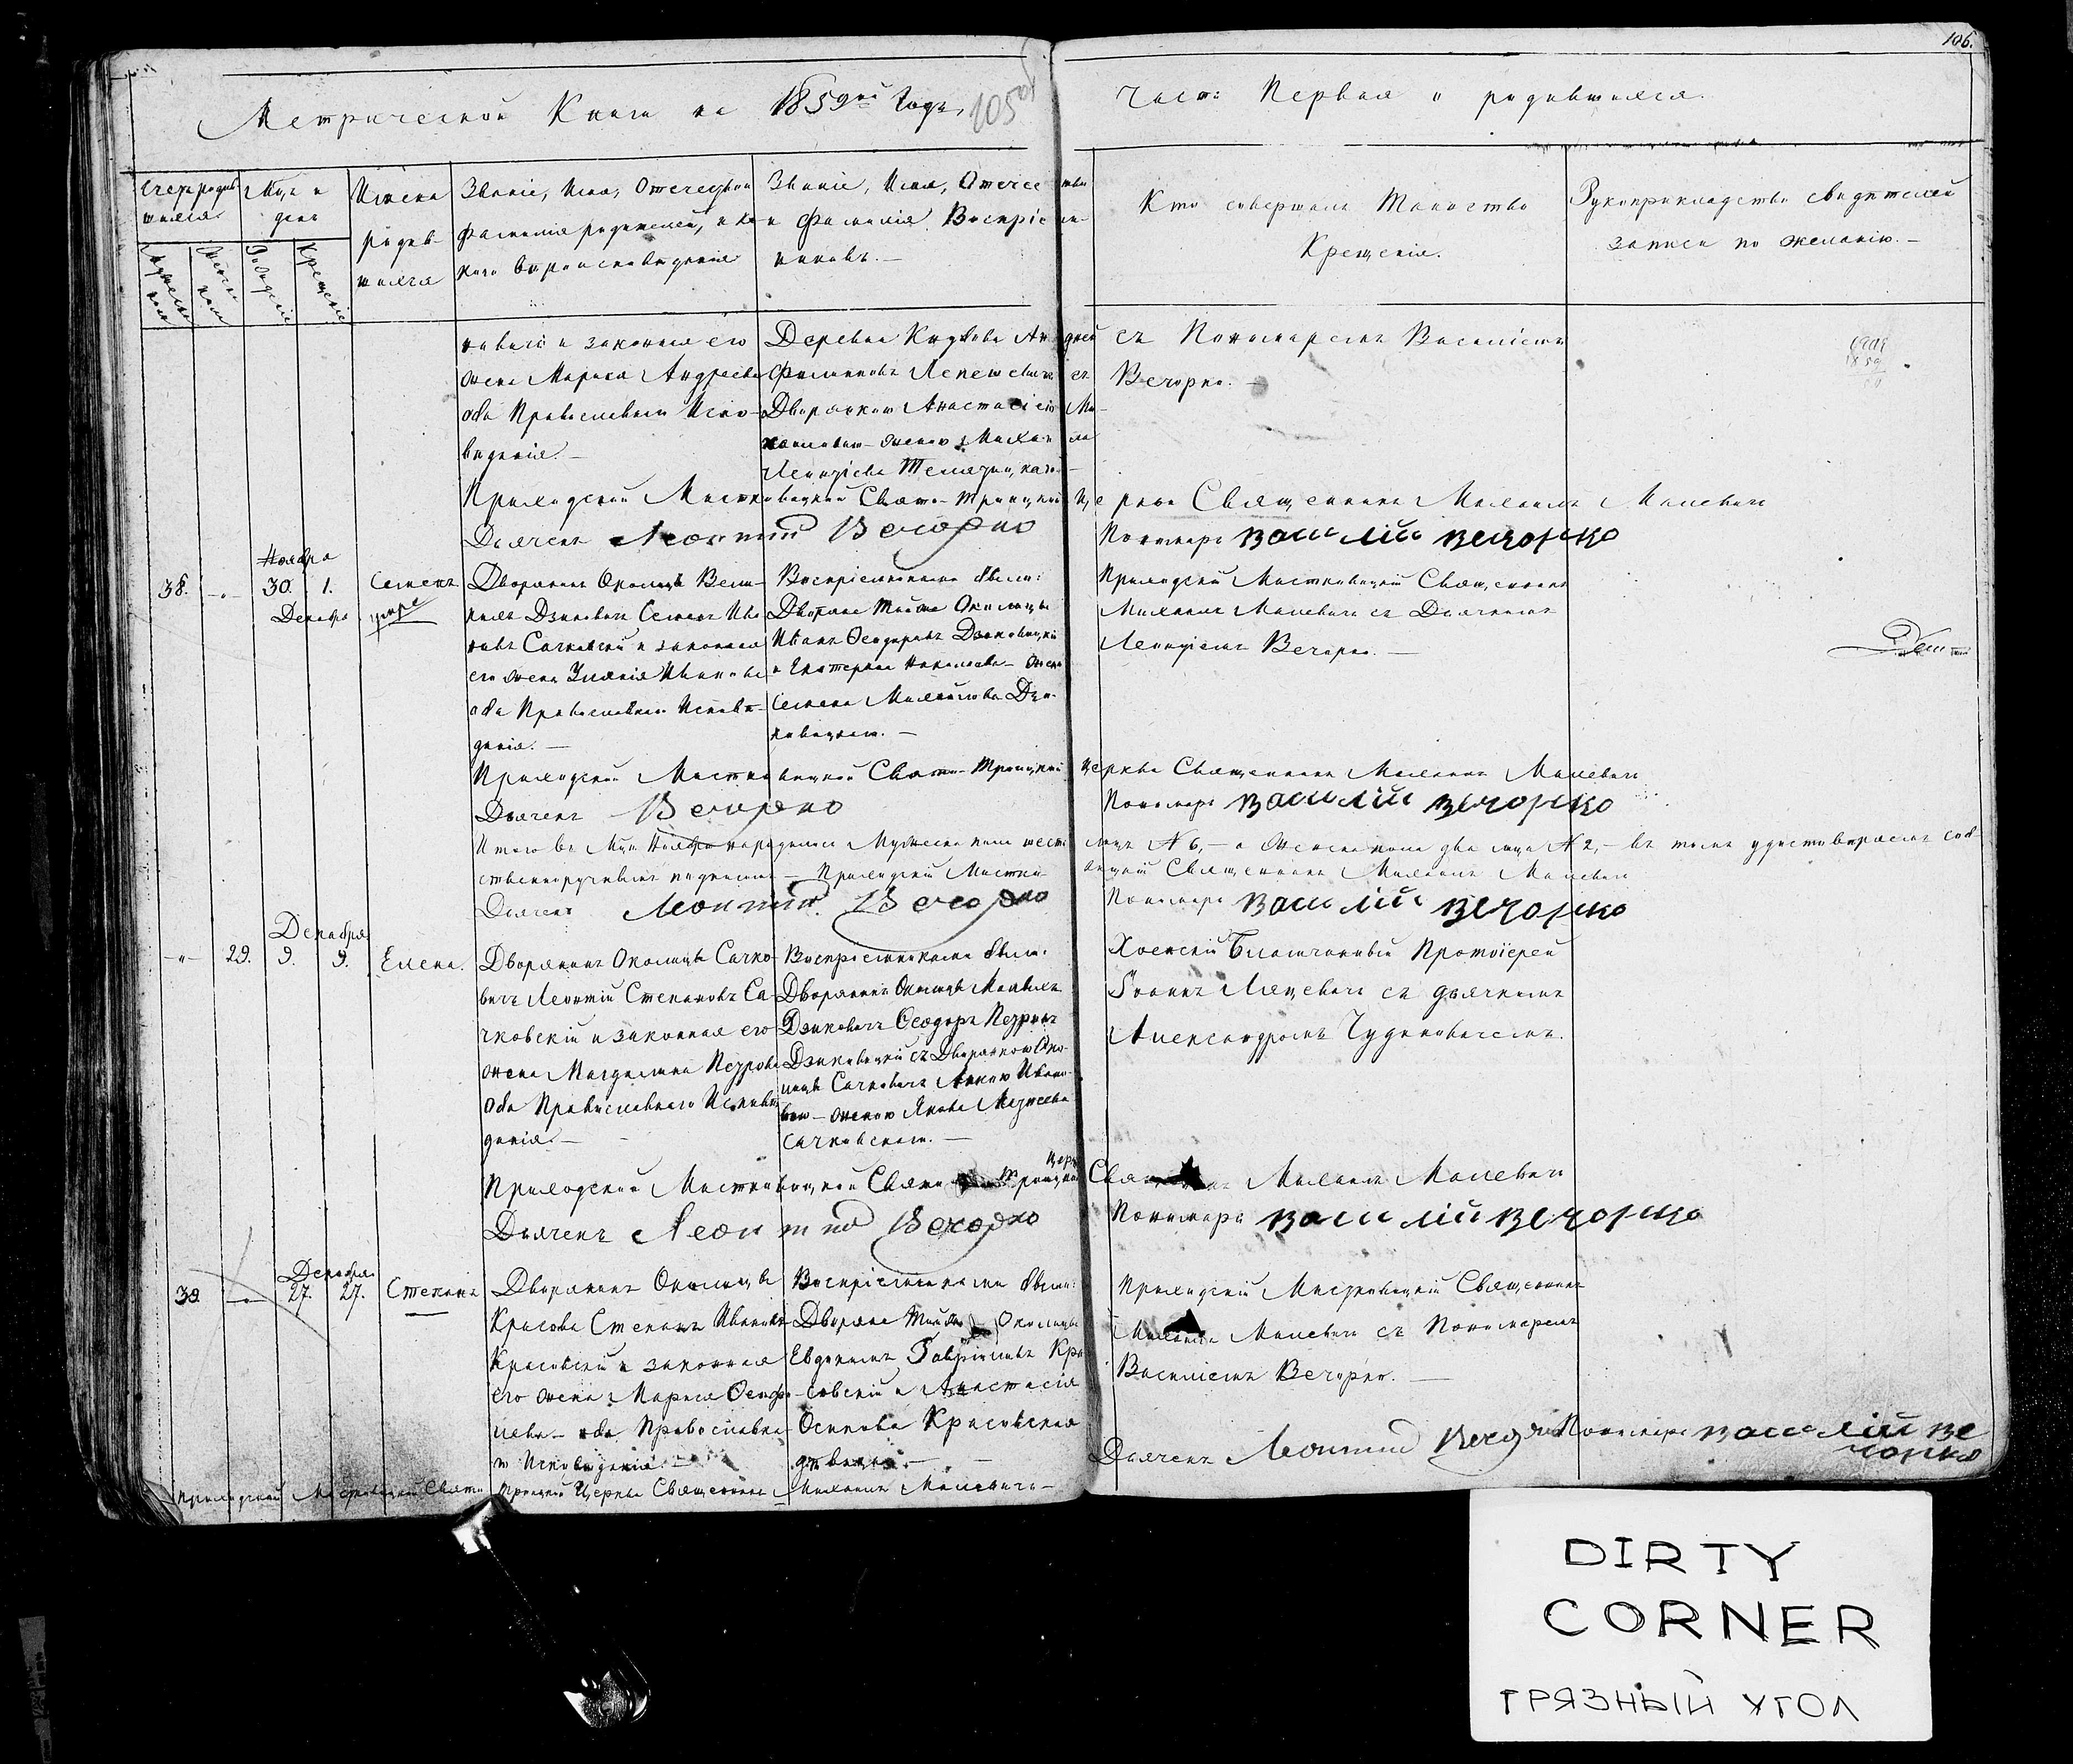 106.
Метрической Книги на 1859й Годъ,
105об
Часть Первая о родившихся.
Счетъ родив
шихся
Мѣс. и
день
Мужеска
пола
Женска
пола
Рожденіе
Крещеніе
Имена
родив-
шихся
Званіе, Имя, Отечество и
Фамилія родителей, и ка
кого вѣроисповѣданія
Званіе, Имя, Отечество
и Фамилія Воспріем-
никовъ. —
Кто совершалъ Таинство
Крещенія.
Рукоприкладство свидѣтелей
записи по желанію. —
законная его
жена Марія Андреева
оба Православнаго Испо-
вѣданія. —
Деревни
съ
Дворянкою Анастасіею Ми-
хайловою женою Михаила
съ Пономаремъ Василіемъ
Вечорко. —
Приходской Мястковицкой Свято-Троицкой Церкви Священникъ Михаилъ Малевичъ
Дьячекъ Леонтій Вечорко
Пономарь Василій Вечорко
38. — Ноября 30. Декабря 1. Семенъ
умре
Дворянинъ Околицы Вели-
кихъ Дзиковичъ Семенъ Ива
новъ Сачковскій и законная
его жена Ульянія Иванова
оба Православнаго Исповѣ-
данія. —
Воспріемниками были:
Дворяне той же Околицы
Иванъ Ѳеодоровъ Дзиковицкій
и Екатерина Николаева жена
Семена Михайлова Дзи-
ковицкаго. —
Приходскій Мястковицкій Священникъ
Михаилъ Малевичъ съ Дьячкомъ
Леонтіемъ Вечорко. —
Приходской Мястковицкой Свято-Троицкой Церкви Священникъ Михаилъ Малевичъ
Дьячекъ Вечорко
Пономарь Василій Вечорко
Итого въ Мцѣ Ноябрѣ народилось Мужеска пола шесть лицъ № 6, — а Женска пола два лица № 2, — въ томъ удостовѣряемъ соб-
ственноручнымъ подписомъ — Приходскій Мястковицкій Священникъ Михаилъ Малевичъ
Дьячекъ Леонтій Вечорко
Пономарь Василій Вечорко
Декабря
" 29. 9. 9. Елена.
Дворянинъ Околицы Сачко-
вичъ Леонтій Степановъ Са-
чковскій и законная его
жена Магдалина Петрова
оба Православнаго Исповѣ
данія. —
Воспріемниками были:
Дворянинъ Околицы Малыхъ
Дзиковичъ Ѳеодоръ Петровъ
Дзиковицкій съ Дворянкою Око-
лицы Сачковичъ Анною Ивано-
вою женою Якова Моѵсеева
Сачковскаго. —
Хоенскій Благочинный Протоіерей
Іоаннъ Ляцевичъ съ дьячкомъ
Александромъ Чудиновичемъ.
Приходской Мястковицкой Свято Троицкой Церкви Священникъ Михаилъ Малевичъ
Дьячекъ Леонтій Вечорко
Пономарь Василій Вечорко
Декабря
39. — 27. 27. Степанъ
Дворянинъ Околицы
Красова Степанъ Ивановъ
Красовскій и законная
его жена Марія
оба Православна
го Исповѣданія. —
Воспріемниками были:
Дворяне той же Околицы
Евдокимъ Гавріиловъ Кра
совскій и Анастасія
Осипова Красовская
дѣвица —
Приходскій Мястковицкій Священникъ
Михаилъ Малевичъ съ Пономаремъ
Василіемъ Вечорко. —
Приходской Мястковицкой Свято Троицкой Церкви Священникъ Михаилъ Малевичъ —
Дьячекъ Леонтій Вечорко Пономарь Василій Ве
чорко
DIRTY
CORNER
ГРЯЗНЫЙ УГОЛ